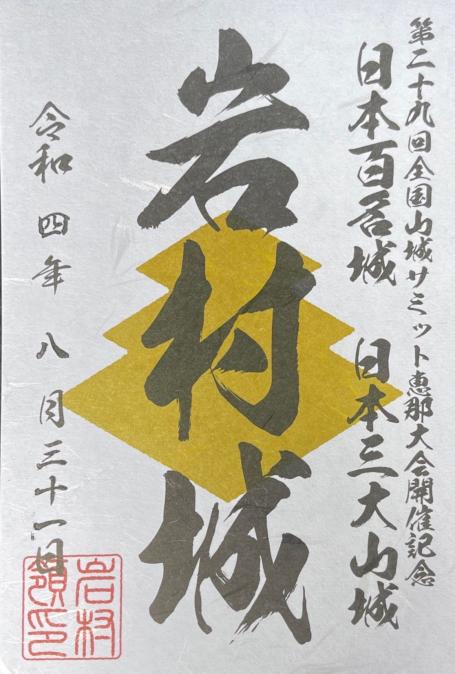 第二十九回全国山城サミット恵那大会開催記念
日本百名城 日本三大山城
岩村城
令和 四年 八月三十一日
岩村
領印